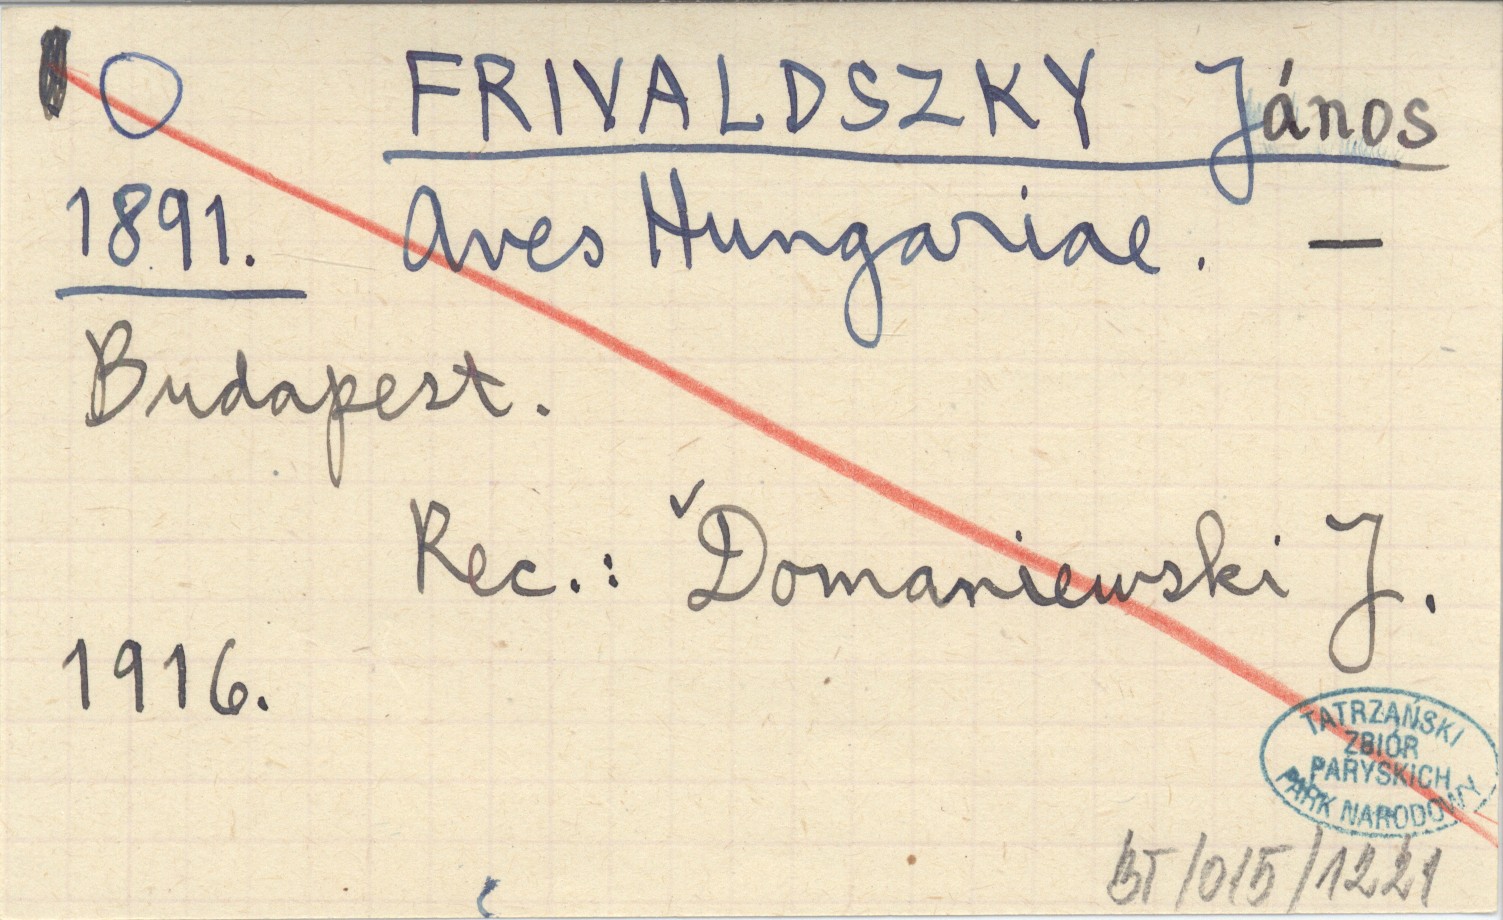 FRIVALDSZKY János
1891. Aves Hungariae. —
Budapest.
Rec.: Domaniewski J.
1916.
TATRZAŃSKI
ZBIÓR
PARYSKICH
PARK NARODOWY
BT/015/1221